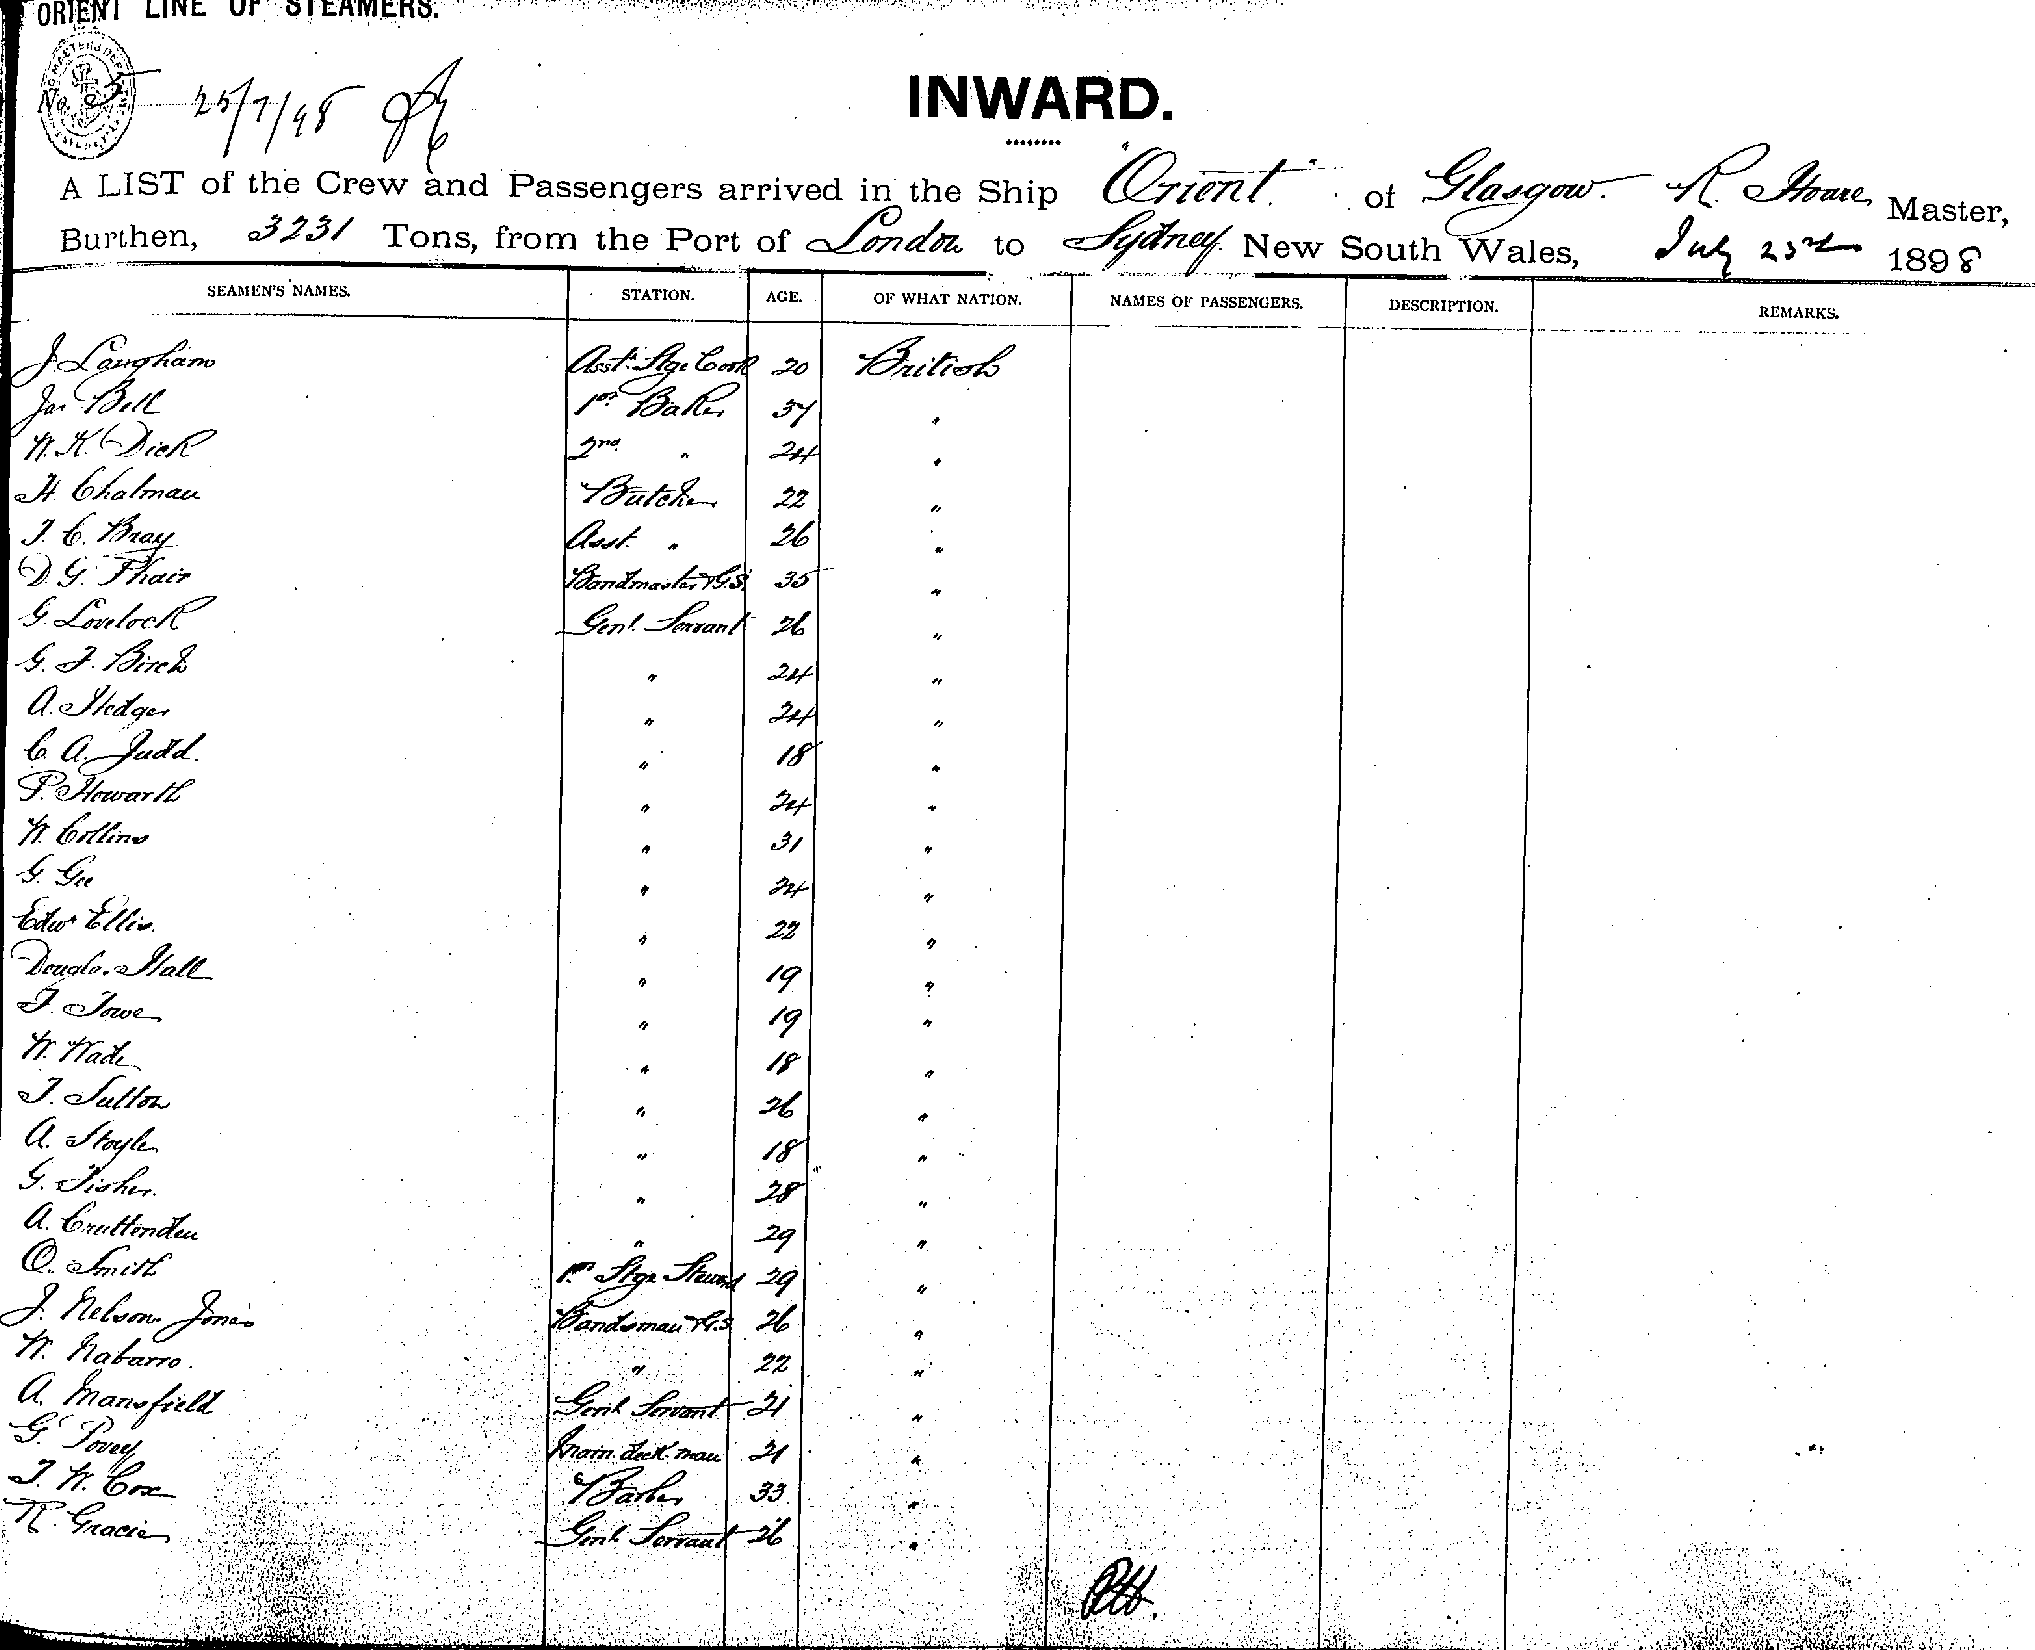 ORIENT LINE OF STEAMERS.
No. 5 25/7/98
INWARD.
A LIST of the Crew and Passengers arrived in the Ship "Orient" of Glasgow. R. Hoare, Master,
Burthen, 3231 Tons, from the Port of London to Sydney. New South Wales, July 23rd 1898
SEAMEN'S NAMES. STATION. AGE. OF WHAT NATION. NAMES OF PASSENGERS. DESCRIPTION. REMARKS.
J. Langham Asst. Stge Cook 20 British
Jas Bell 1st Baker 37 "
W. K. Dick 2nd " 24 "
H. Chatman Butcher 22 "
T. C. Bray Asst. " 26 "
D. G. Phair Bandmaster & G.S. 35 "
G. Lovelock Genl. Servant 26 "
G. F. Birch " 24 "
A. Hedger " 24 "
C. A. Judd. " 18 "
P. Howarth " 24 "
W. Collins " 31 "
G. Gee " 24 "
Edwd Ellis. " 22 "
Douglas Hall " 19 "
F. Towe " 19 "
W. Wade " 18 "
T. Sutton " 26 "
A. Stoyle " 18 "
G. Fisher. " 28 "
A. Cruttenden " 29 "
O. Smith 1st Stge Steward 29 "
J. Nelson Jones Bandsman & G.S. 26 "
W. Nabarro. " 22 "
A. Mansfield Genl. Servant 21 "
G. Povey Main deck man 21 "
T. W. Cox Barber 33 "
R. Gracie Genl. Servant 26 "